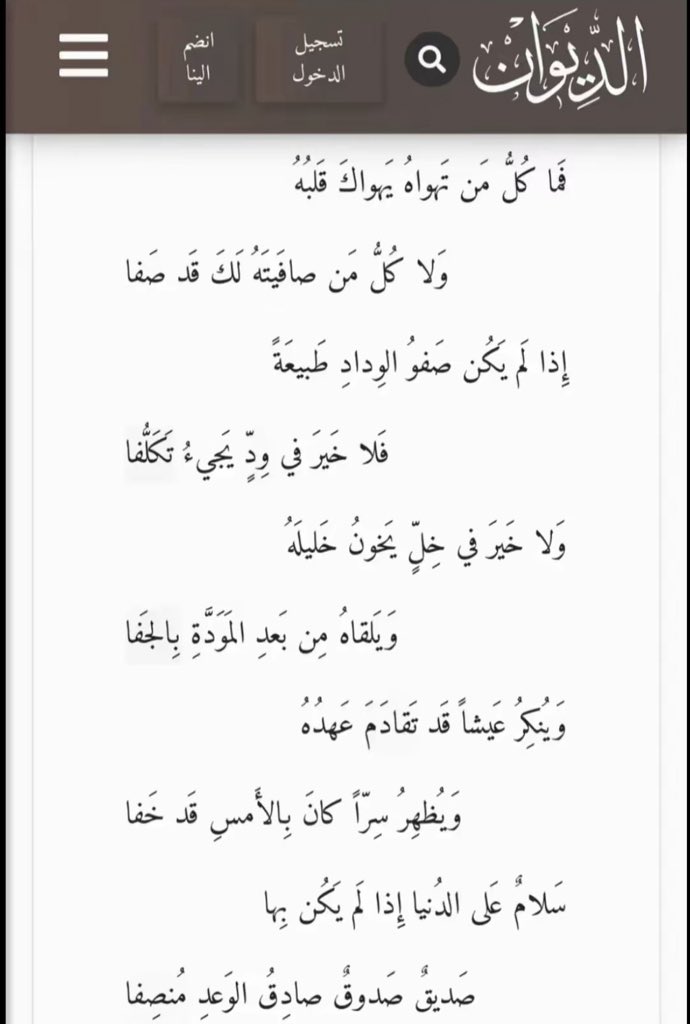 الدِّيوَان
تسجيل الدخول
انضم الينا
فَما كُلُّ مَن تَهواهُ يَهواكَ قَلبُهُ
وَلا كُلُّ مَن صافَيتَهُ لَكَ قَد صَفا
إِذا لَم يَكُن صَفوُ الوِدادِ طَبيعَةً
فَلا خَيرَ في وِدٍّ يَجيءُ تَكَلُّفا
وَلا خَيرَ في خِلٍّ يَخونُ خَليلَهُ
وَيَلقاهُ مِن بَعدِ المَوَدَّةِ بِالجَفا
وَيُنكِرُ عَيشاً قَد تَقادَمَ عَهدُهُ
وَيُظهِرُ سِرّاً كانَ بِالأَمسِ قَد خَفا
سَلامٌ عَلى الدُنيا إِذا لَم يَكُن بِها
صَديقٌ صَدوقٌ صادِقُ الوَعدِ مُنصِفا